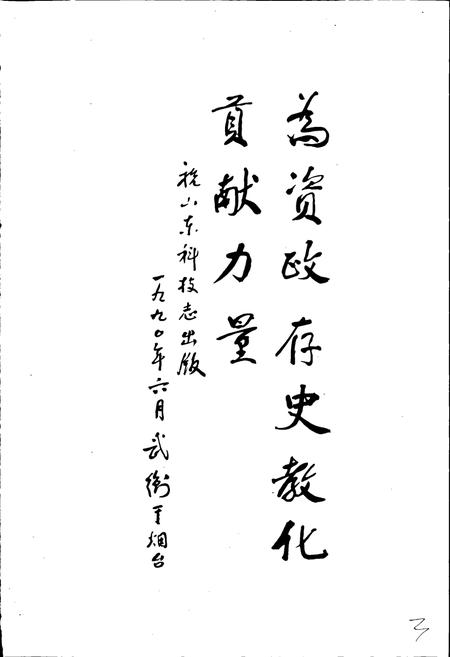 為资政存史教化
貢献力量
祝山东科技志出版
一九九〇年六月武衡于烟台
3